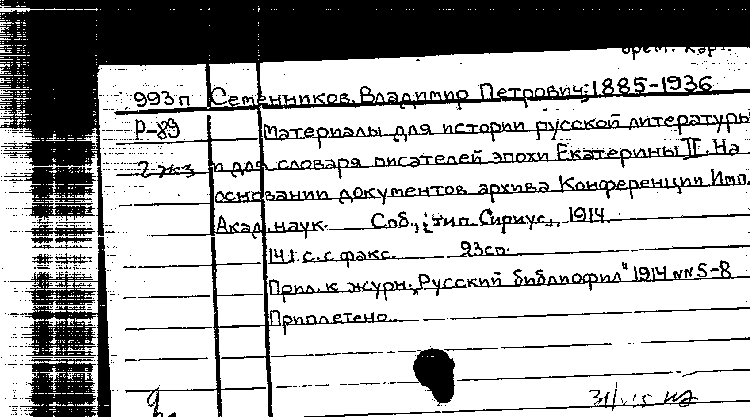 врем. кар.
993п Семенников, Владимир Петрович; 1885-1936
Р-89 Материалы для истории русской литературы
2 экз и для словаря писателей эпохи Екатерины II. На
основании документов архива Конференции Имп.
Акад. наук. Спб., тип. Сириус, 1914
141 с. с факс. 23см.
Прил. к журн. "Русский библиофил" 1914 NN 5-8
Приплетено.